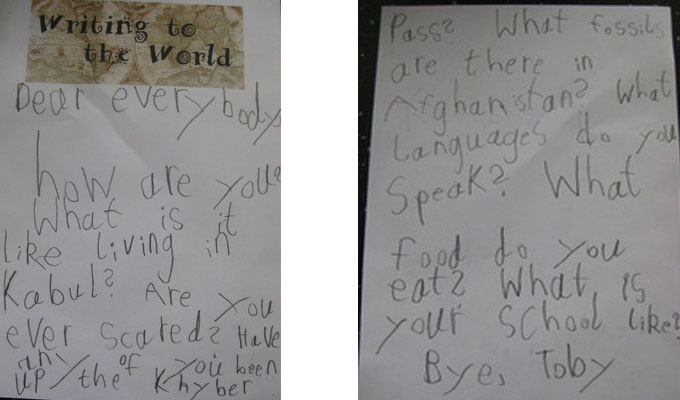 Writing to
the World
Dear everybody
how are you?
What is it
like living in
Kabul? Are you
ever scared? Have
any of you been
up the Khyber
Pass? What fossils
are there in
Afghanistan? What
Languages do you
Speak? What
food do you
eat? What is
your School like?
Bye, Toby